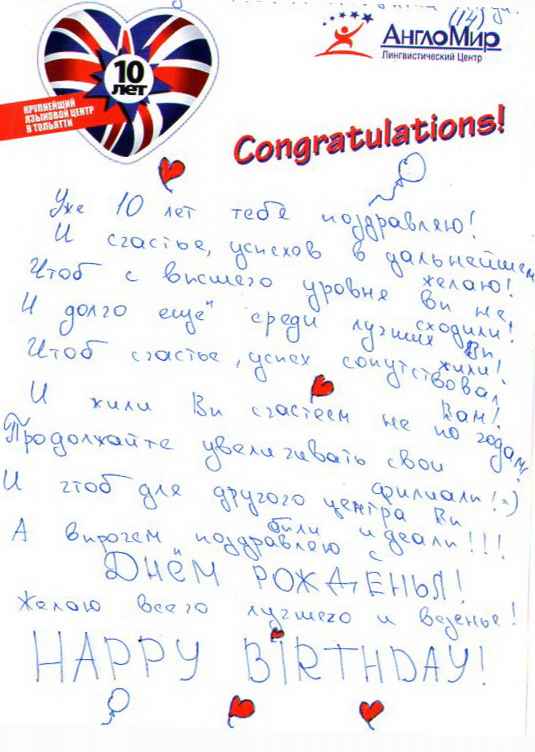 (14)
АнглоМир
Лингвистический Центр
10
лет
КРУПНЕЙШИЙ
ЯЗЫКОВОЙ ЦЕНТР
В ТОЛЬЯТТИ
Congratulations!
Уже 10 лет тебе поздравляю!
И счастье, успехов в дальнейшем желаю!
Чтоб с высшего уровня вы не сходили!
И долго ещё среди лучших Вы жили!
Чтоб счастье, успех сопутствовал Вам!
И жили Вы счастьем не по годам!
Продолжайте увеличивать свои филиалы! :)
И чтоб для другого центра Вы были идеалы!!!
А впрочем поздравляю с
ДНЁМ РОЖДЕНЬЯ!
Желаю всего лучшего и везенье!
HAPPY BIRTHDAY!